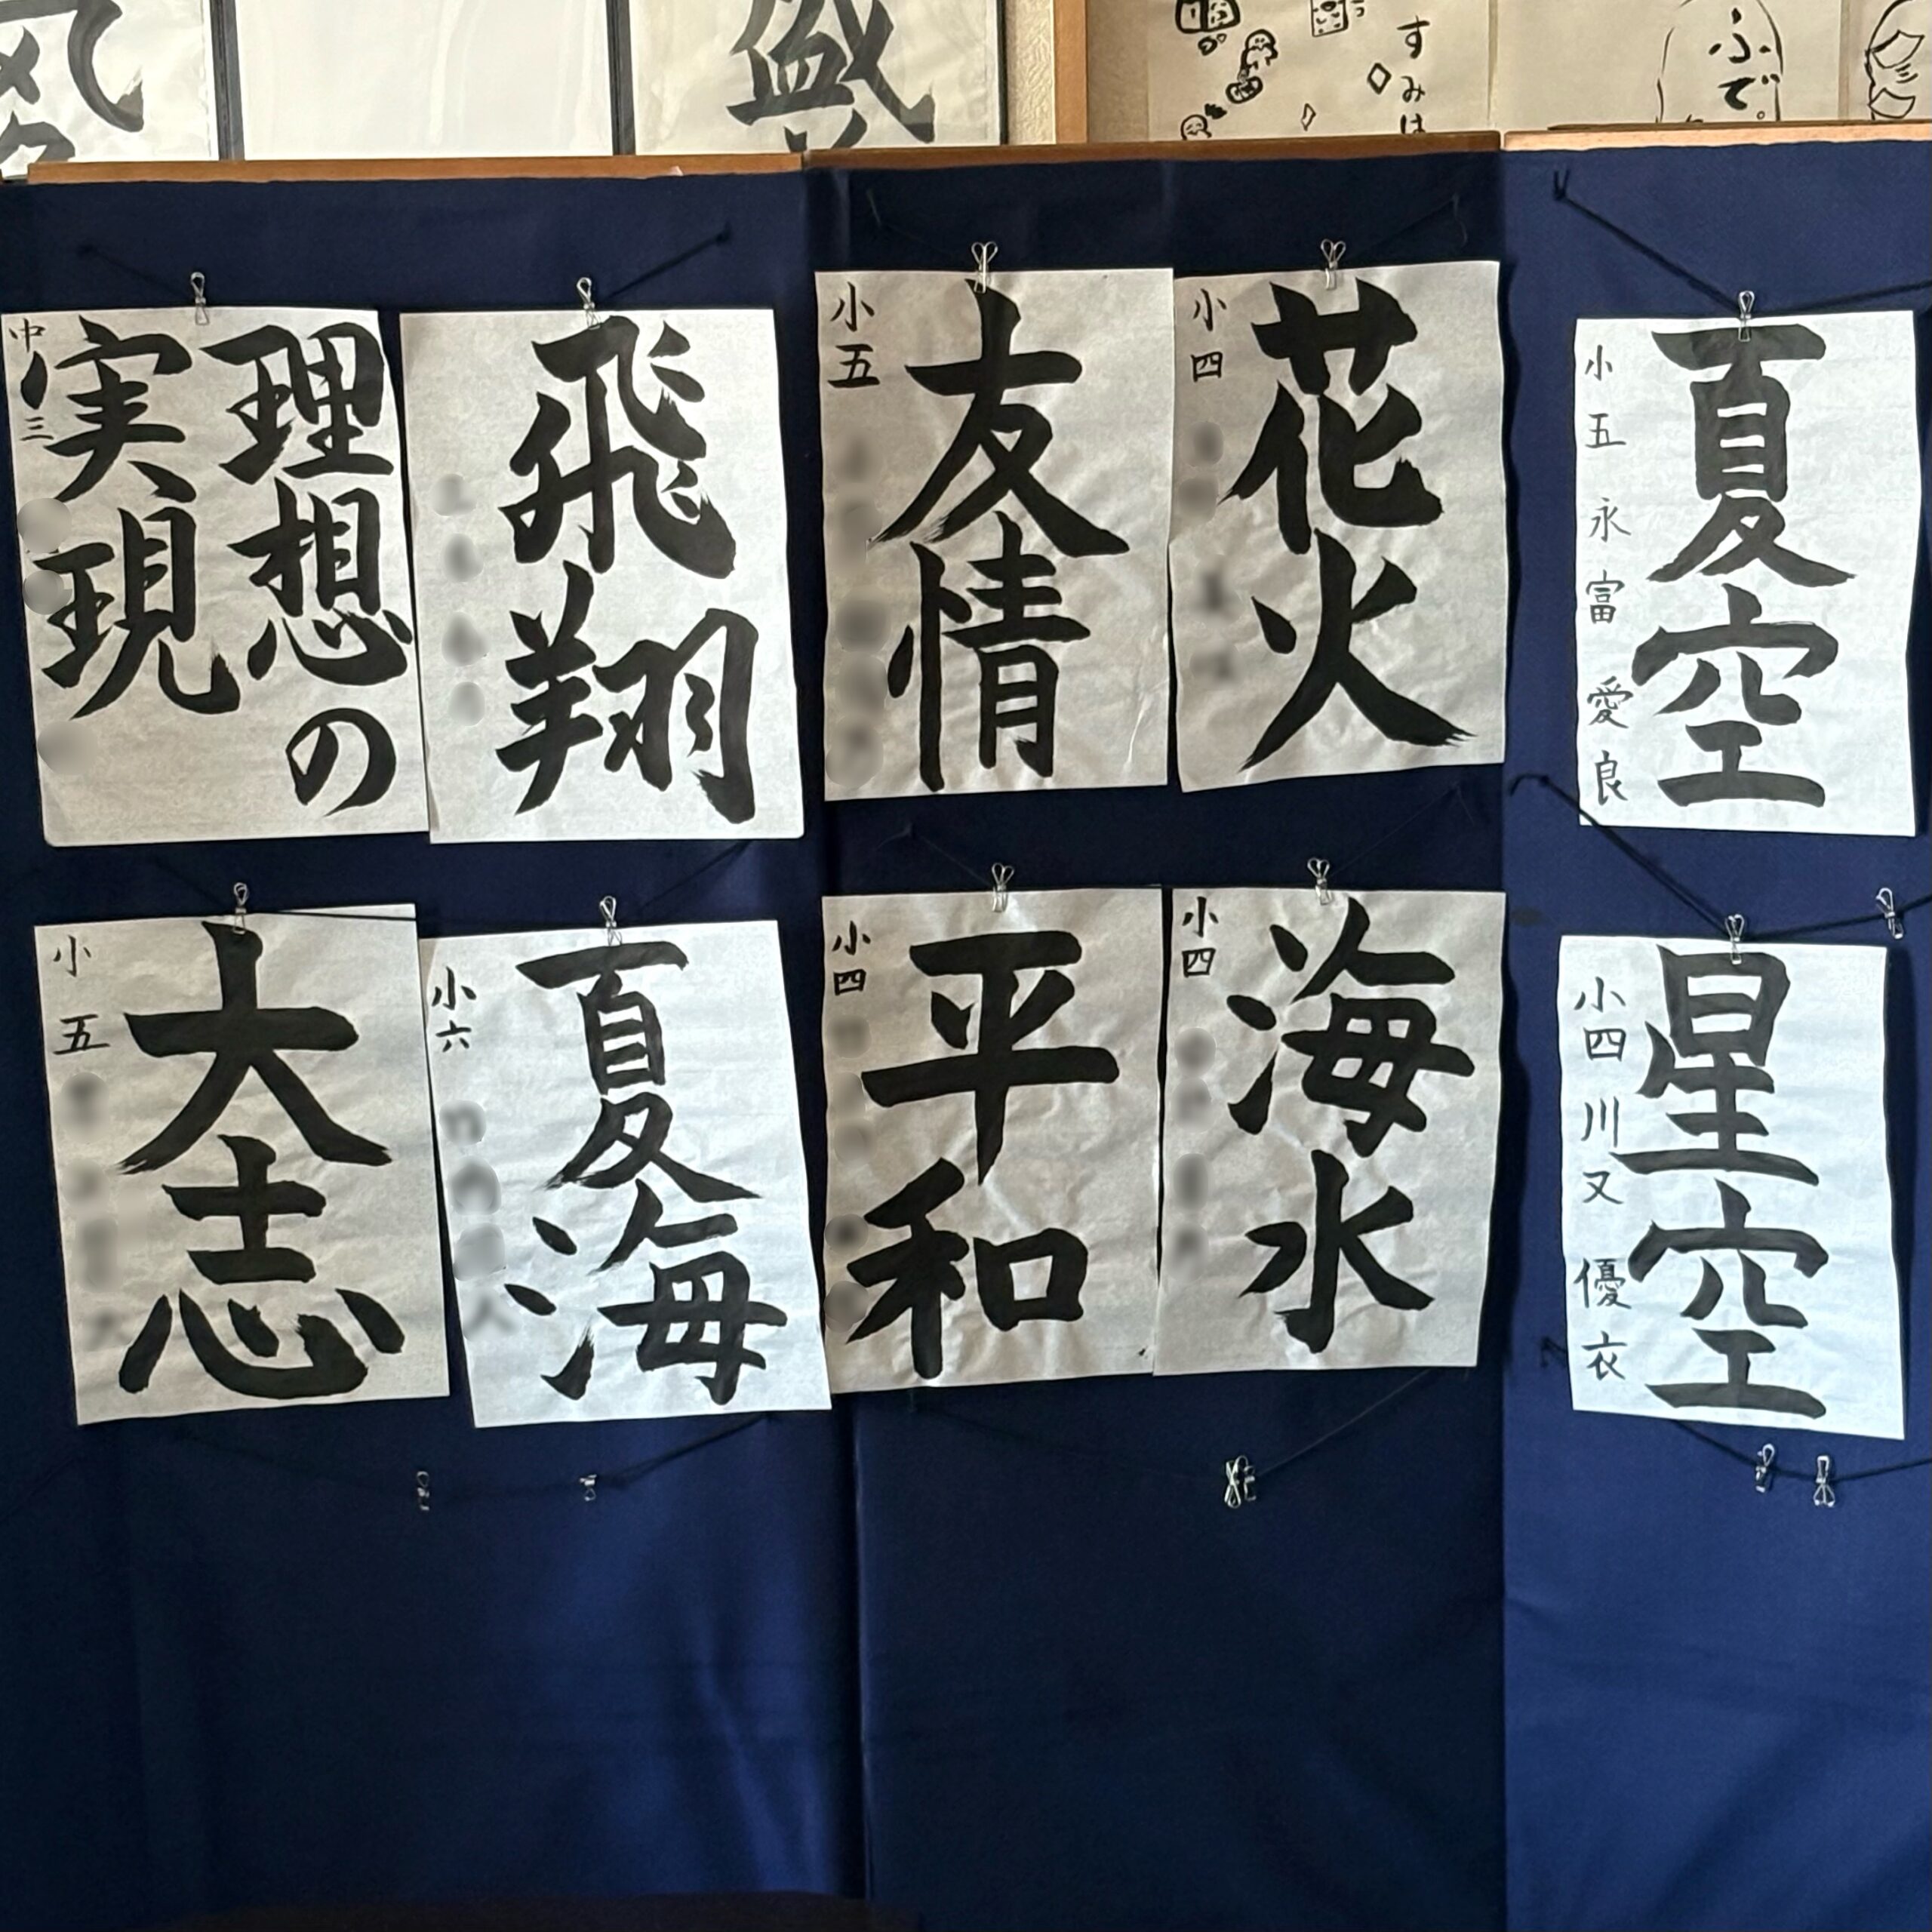 盛
すみは
ふで。
夏空
小五 永富愛良
花火
小四
友情
小五
飛翔
理想の
実現
中三
星空
小四 川又優衣
海水
小四
平和
小四
夏海
小六
大志
小五